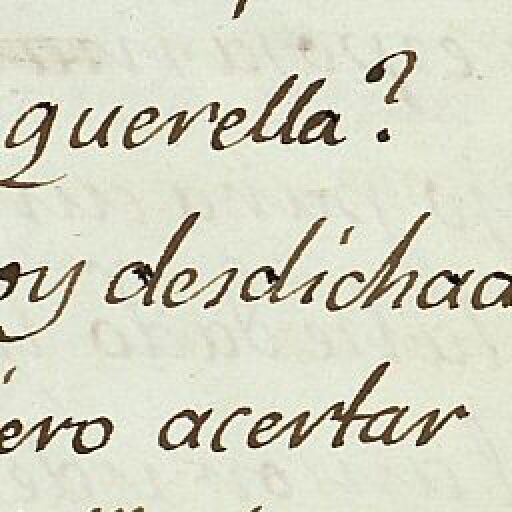 querella?
oy desdichad
iero acertar